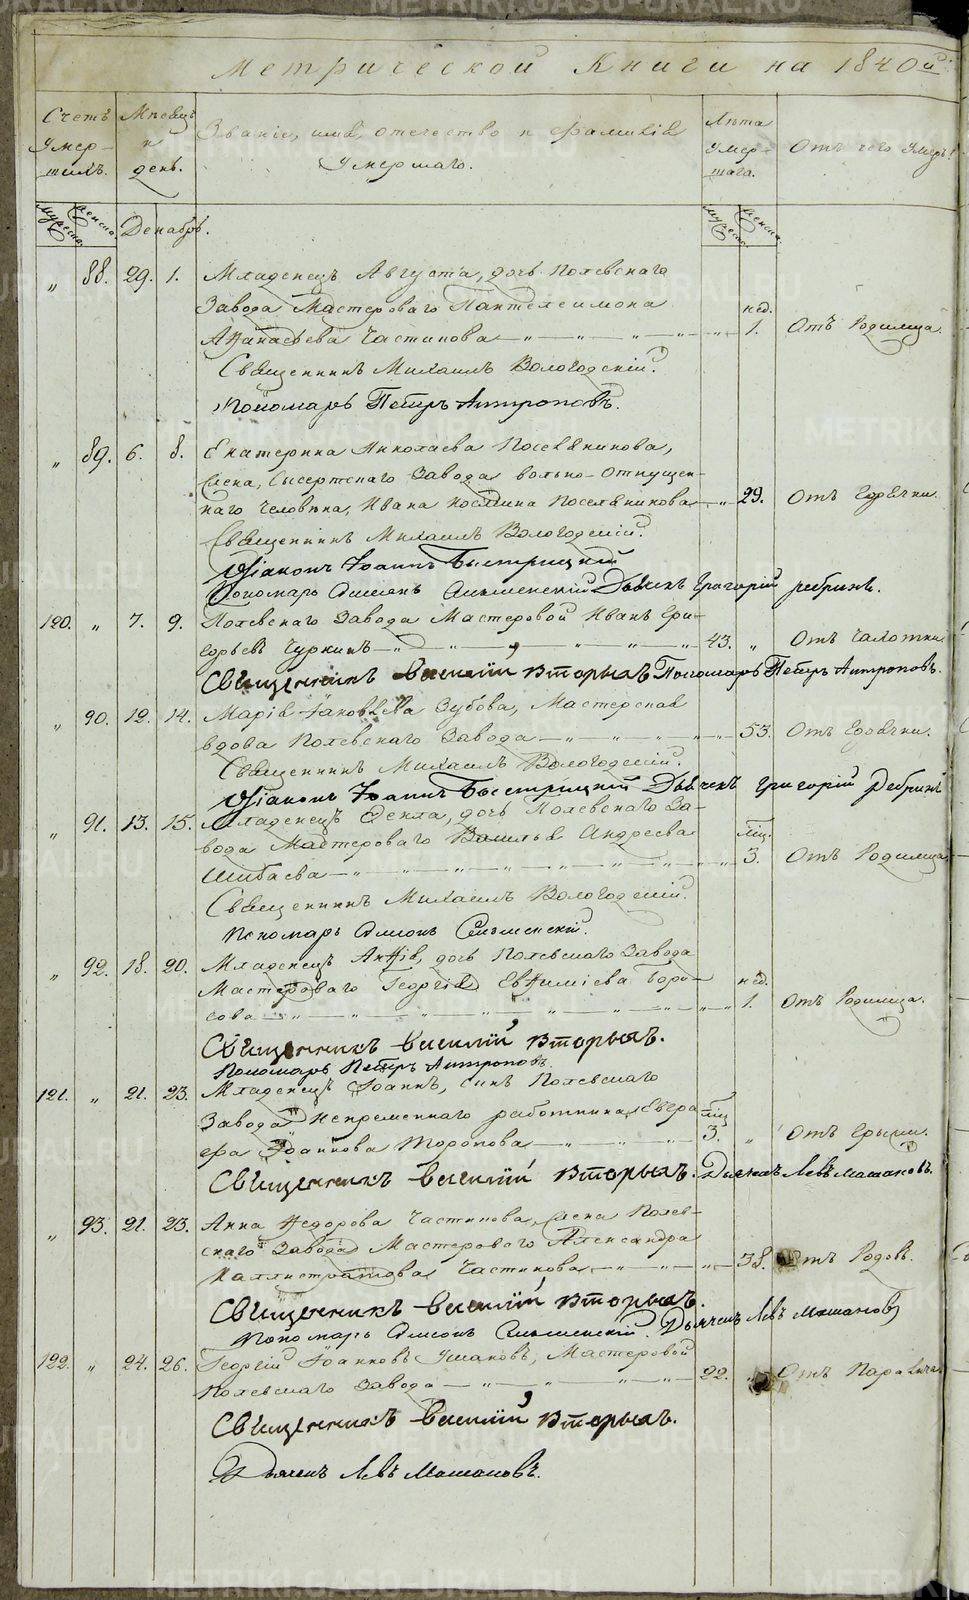 Метрической Книги на 1840й
Счетъ Умер-шихъ. Мѣсяцъ и день. Званіе, имя, отечество и фамилія Умершаго. Лѣта Умер-шаго. Отъ чего Умеръ?
мужеска. женска. Декабрь. мужеска. женска.
„ 88. 29. 1. Младенецъ Августа, дочь Полевскаго
Завода Мастероваго Пантелеимона нед.
Аѳанасьева Частикова — „ — „ — „ — „ 1. Отъ Родимца.
Священникъ Михаилъ Вологодскій.
Пономарь Петръ Антроповъ.
„ 89. 6. 8. Екатерина Николаева Посельникова,
жена, Сысертскаго Завода вольно-Отпущен-
наго Человѣка, Ивана Посельникова „ 29. Отъ Горячки.
Священникъ Михаилъ Вологодскій.
Діаконъ Іоаннъ Быстрицкій
Пономарь Симеонъ Смышленскій Дьячекъ Григорій Ребринъ.
120. „ 7. 9. Полевскаго Завода Мастеровой Иванъ Гри-
горьевъ Чуркинъ — „ — „ — „ — „ 43. „ Отъ Чахотки
Священникъ Василій Вторыхъ Пономарь Петръ Антроповъ.
„ 90. 12. 14. Марія Іаковлева Зубова, Мастерская
вдова Полевскаго Завода — „ — „ — „ — „ 53. Отъ Горячки.
Священникъ Михаилъ Вологодскій.
Діаконъ Іоаннъ Быстрицкій Дьячекъ Григорій Ребринъ
„ 91. 13. 15. Младенецъ Фекла, дочь Полевскаго За-
вода Мастероваго Василья Андреева мѣц.
Шибаева — „ — „ — „ — „ — „ 3. Отъ Родимца
Священникъ Михаилъ Вологодскій.
Пономарь Симеонъ Смышленскій.
„ 92. 18. 20. Младенецъ дочь Полевскаго Завода
Мастероваго Георгія Евѳиміева Бори- нед.
сова — „ — „ — „ — „ — „ 1. Отъ Родимца.
Священникъ Василій Вторыхъ.
Пономарь Петръ Антроповъ.
121. „ 21. 23. Младенецъ Іоаннъ, сынъ Полевскаго
Завода Непременнаго работника Евгра- мѣц
фа Іоаннова Торопова — „ — „ — „ 3. „ Отъ Грыжи.
Священникъ Василій Вторыхъ. Дьячекъ Левъ Машановъ.
„ 93. 21. 23. Анна Ѳедорова Частикова, жена Полев-
скаго Завода Мастероваго Александра
Каллистратова Частикова — „ — „ 38. Отъ Родовъ.
Священникъ Василій Вторыхъ.
Пономарь Симеонъ Смышленскій. Дьячекъ Левъ Машановъ
122. „ 24. 26. Георгій Іоанновъ Ушаковъ, Мастеровой
Полевскаго Завода — „ — „ — „ 22. „ Отъ Паралича.
Священникъ Василій Вторыхъ.
Дьячекъ Левъ Машановъ.
METRIKI.GASO-URAL.RU